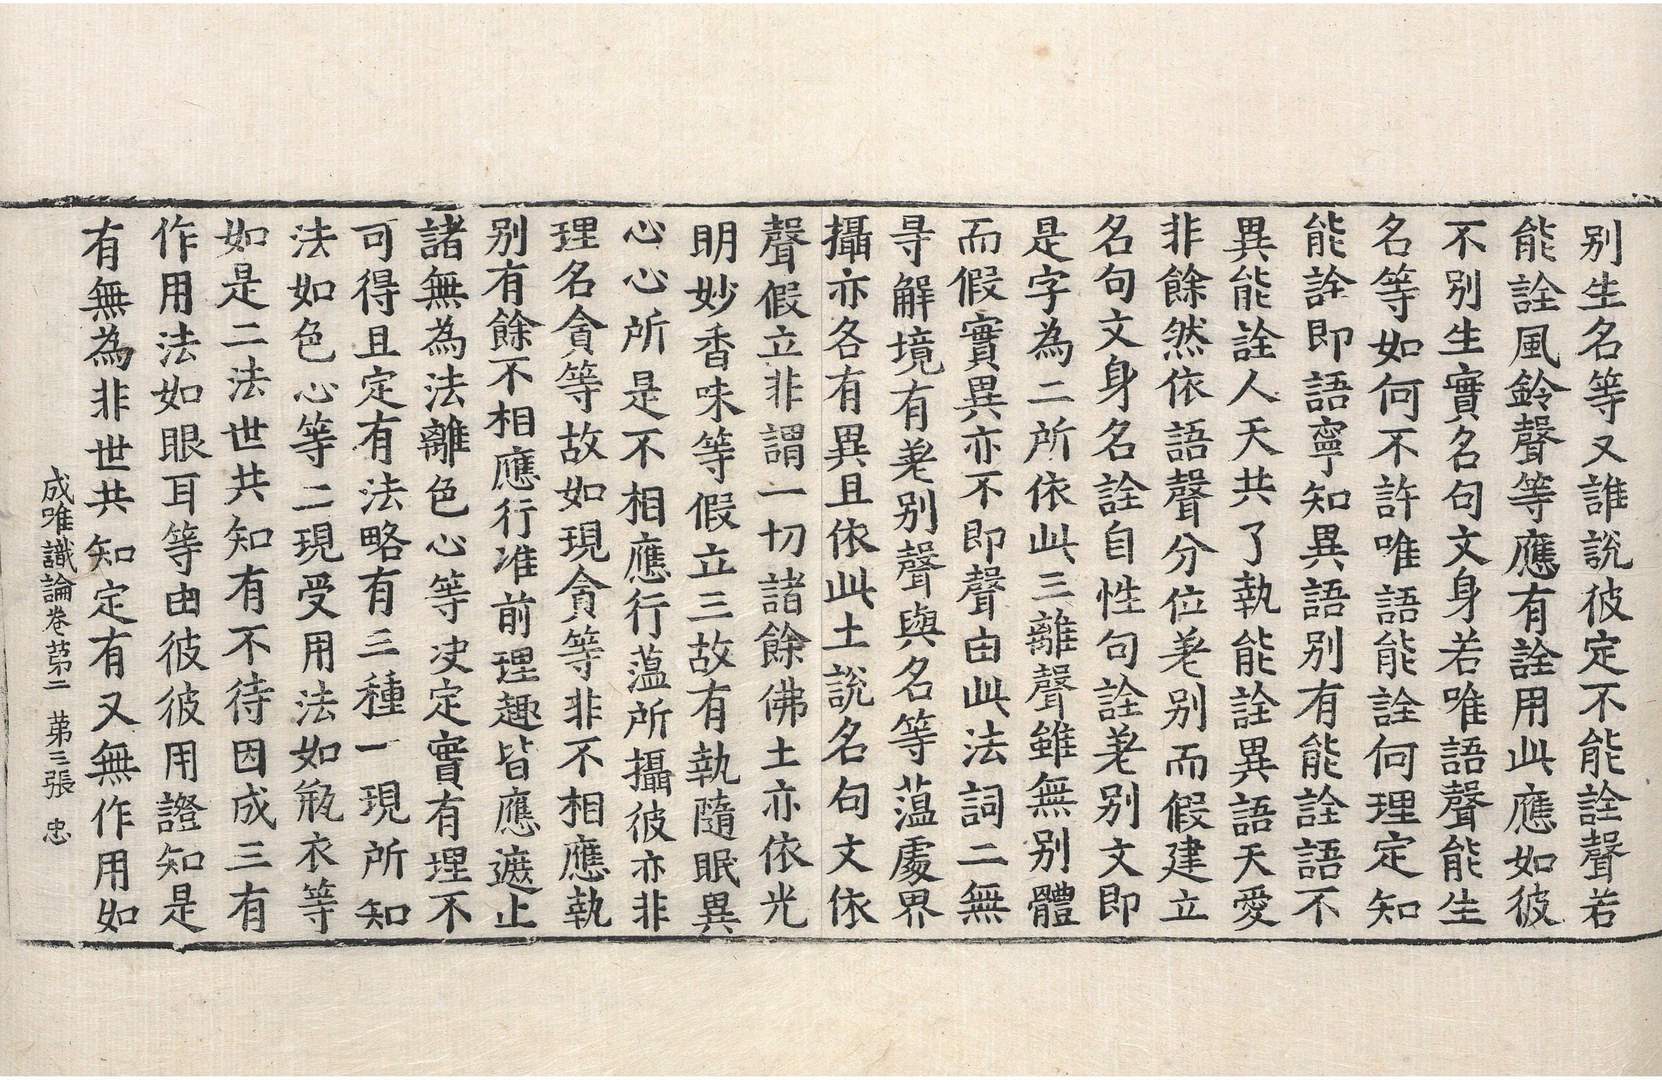 别生名等又誰說彼定不能詮聲若
能詮風鈴聲等應有詮用此應如彼
不别生實名句文身若唯語聲能生
名等如何不許唯語能詮何理定知
能詮即語寧知異語别有能詮語不
異能詮人天共了執能詮異語天愛
非餘然依語聲分位差别而假建立
名句文身名詮自性句詮差别文即
是字為二所依此三離聲雖無别體
而假實異亦不即聲由此法詞二無
㝵解境有差别聲與名等蕰處界
攝亦各有異且依此土說名句文依
聲假立非謂一切諸餘佛土亦依光
明妙香味等假立三故有執隨眠異
心心所是不相應行蕰所攝彼亦非
理名貪等故如現貪等非不相應執
别有餘不相應行准前理趣皆應遮止
諸無為法離色心等決定實有理不
可得且定有法略有三種一現所知
法如色心等二現受用法如瓶衣等
如是二法世共知有不待因成三有
作用法如眼耳等由彼彼用證知是
有無為非世共知定有又無作用如
成唯識論卷苐二 苐三張 忠